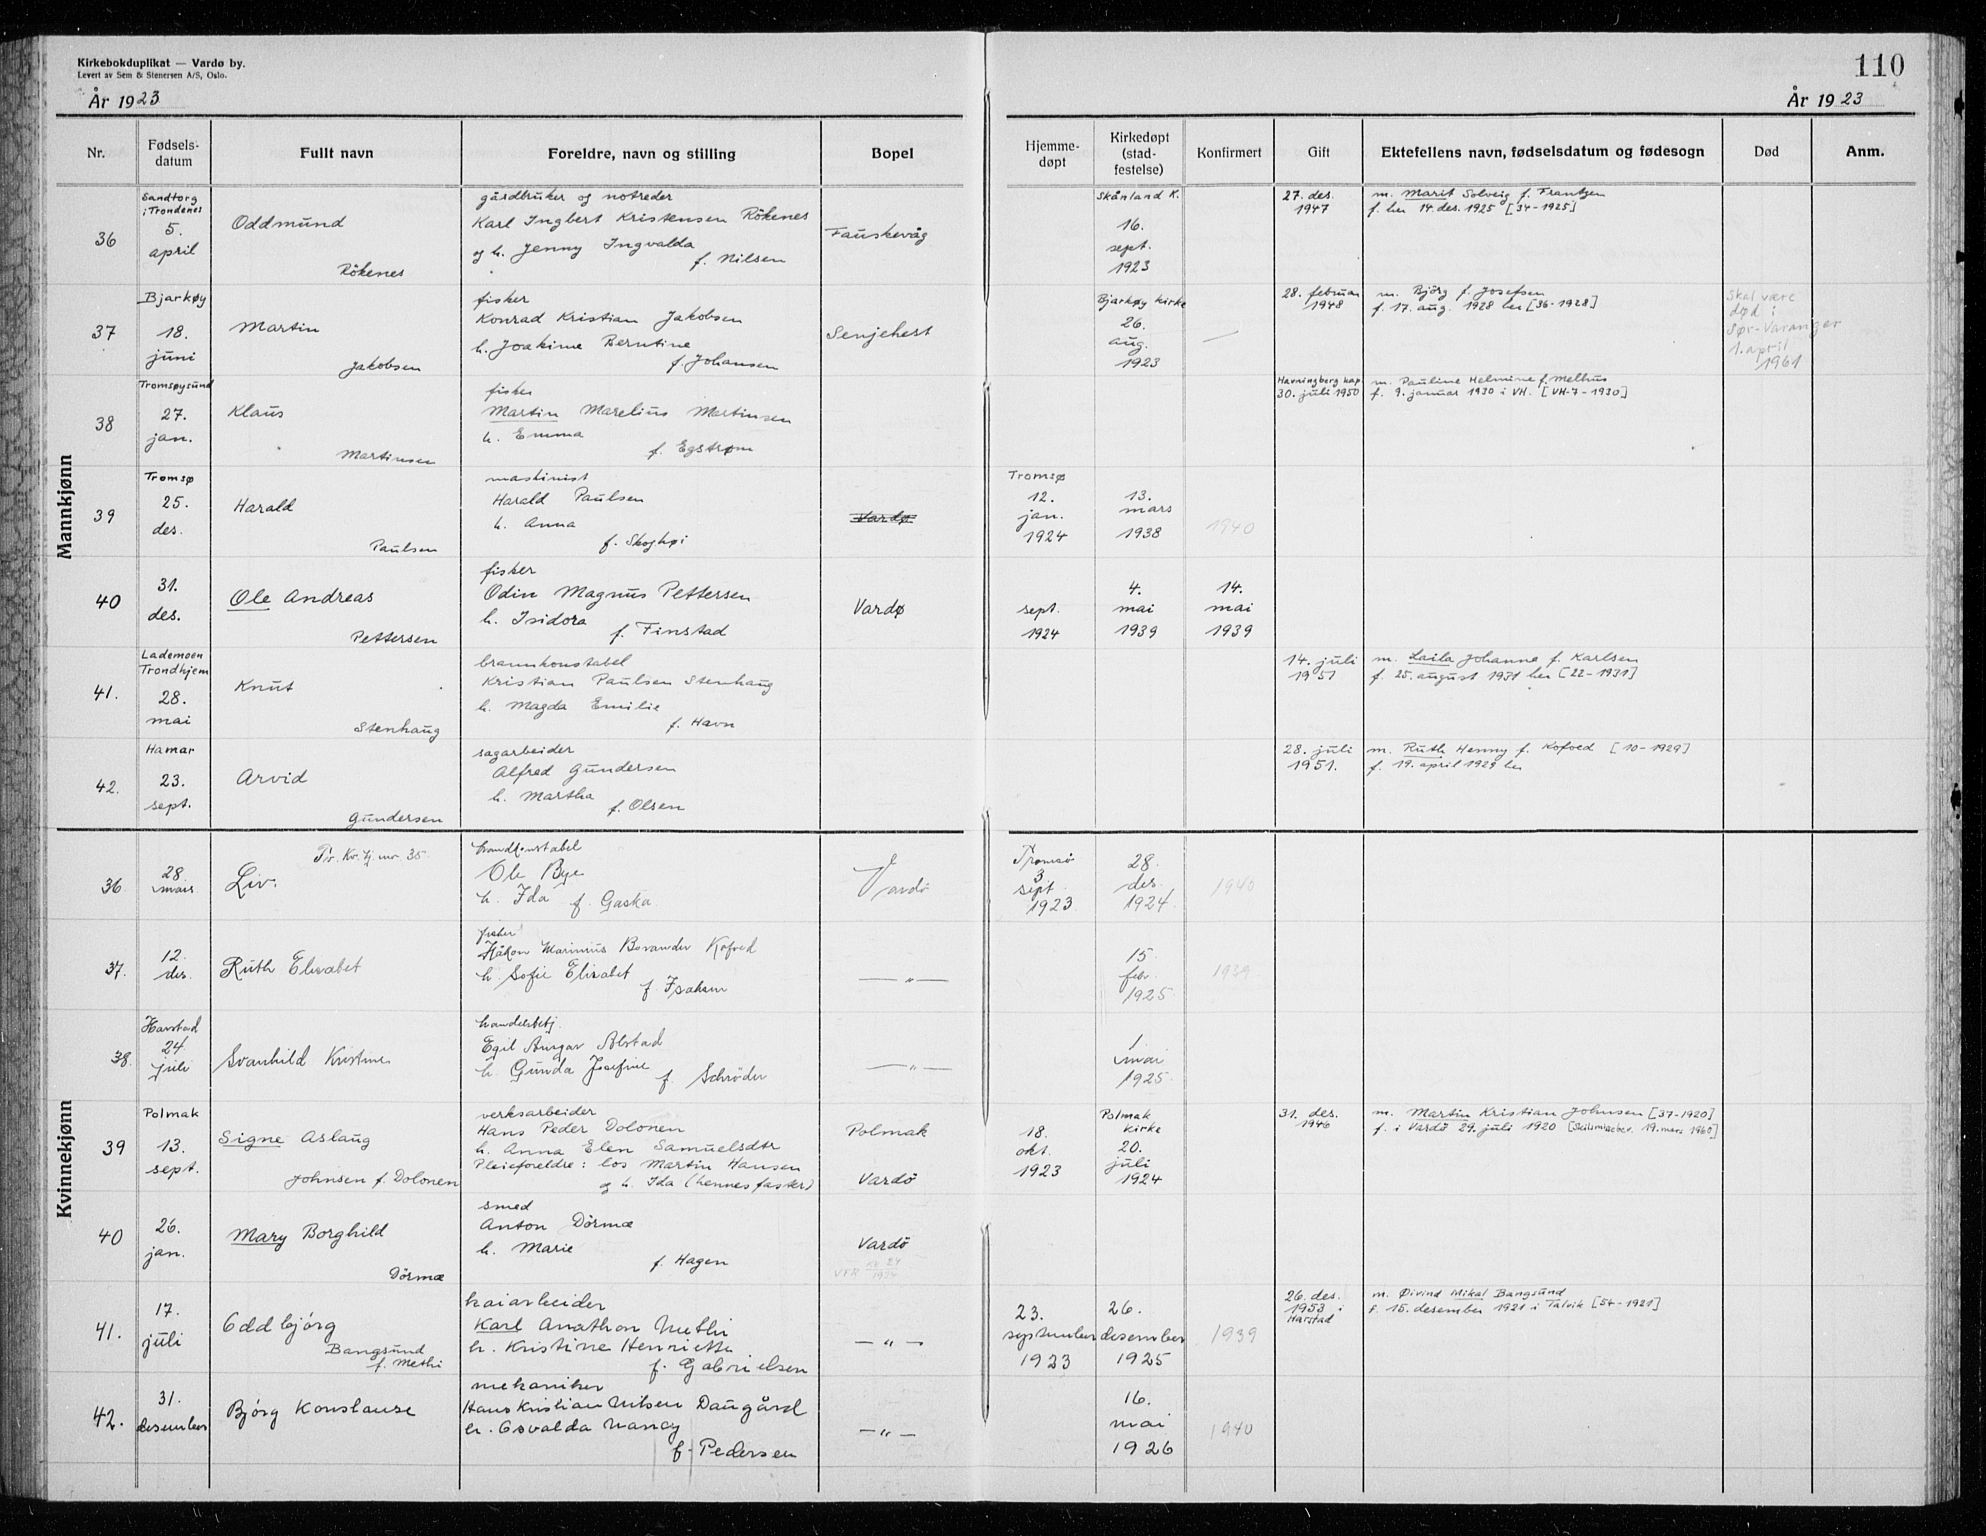 Kirkebokduplikat — Vardø by.
Levert av Sem & Stenersen A/S, Oslo.
110
År 1923
År 1923
Nr.
Fødsels-
datum
Fullt navn
Foreldre, navn og stilling
Bopel
Hjemme-
døpt
Kirkedøpt
(stad-
festelse)
Konfirmert
Gift
Ektefellens navn, fødselsdatum og fødesogn
Død
Anm.
Mannkjønn
36
Sandtorg
i Trondenes
5.
april
Oddmund
Rökenes
gårdbruker og notreder
Karl Ingbert Kristensen Rökenes
og h. Jenny Ingvalda
f. Nilsen
Fauskevåg
Skånland K.
16.
sept.
1923
27. des.
1947
m. Marit Solveig f. Frantzen
f. her 14. des. 1925 [34-1925]
37
Bjarkøy
18.
juni
Martin
Jakobsen
fisker
Konrad Kristian Jakobsen
h. Joakime Berntine
f. Johansen
Senjehest
Bjarkøy kirke
26.
aug.
1923
—
28. februar
1948
m. Bjørg f. Josefsen
f. 17. aug. 1928 her [36-1928]
Skal være
død i
Sør-Varanger
1. april
1961
38
Tromsøysund
27.
jan.
Klaus
Martinsen
fisker
Martin Marelius Martinsen
h. Emma
f. Egstrøm
Havningberg kap.
30. juli 1950
m. Pauline Helmine f. Melhus
f. 9. januar 1930 i VH. [VH-7-1930]
39
Tromsø
25.
des.
Harald
Paulsen
maskinist
Harald Paulsen
h. Anna
f. Skoghøi
Vardø
Tromsø
12.
jan.
1924
13.
mars
1938
1940
40
31.
des.
Ole Andreas
Pettersen
fisker
Odin Magnus Pettersen
h. Isidora
f. Finstad
Vardø
sept.
1924
4.
mai
1939
14.
mai
1939
41.
Lademoen
Trondhjem
28.
mai
Knut
Stenhaug
brannkonstabel
Kristian Paulsen Stenhaug
h. Magda Emilie
f. Havn
14. juli
1951
m. Laila Johanne f. Karlsen
f. 25. august 1931 her [22-1931]
42.
Hamar
23.
sept.
Arvid
Gundersen
sagarbeider
Alfred Gundersen
h. Martha
f. Olsen
28. juli
1951.
m. Ruth Henny f. Kofoed [10-1929]
f. 19. april 1929 her
Kvinnekjønn
36
28
mars
Kv. kj. nr 35
Liv.
Ole Bye
h. Ida f. Gaska
Vardö
Tromsö
3.
sept.
1923
28.
des.
1924
1940
37.
12.
des.
Ruth Elisabet
fisker
Håkon Marinius Kofoed
h. Sofie Elisabet
f. Isaksen
— „ —
15.
feb.
1925
1939
38.
Harstad
24.
juli
Svanhild Kristine
handelsbetj.
Egil Ansgar
h. Gunda Josefine
f. Schrøder
— „ —
1.
mai
1925
39
Polmak
13.
sept.
Signe Aslaug
Johnsen f. Dolonen
verksarbeider
Hans Peder Dolonen
h. Anna Elen Samuelsdtr
Pleieforeldre: los Martin Hansen
og h. Ida (hennes faster)
Polmak
Vardö
18.
okt.
1923
Polmak
kirke
20.
juli
1924
31. des.
1946
m. Martin Kristian Johnsen [37-1920]
f. i Vardö 29. juli 1920 [Skilsmissebev. 19. mars 1960]
40
26.
jan.
Mary Borghild
Dörmæ
smed
Anton Dörmæ
h. Marie
f. Hagen
Vardö
41.
17.
juli
Oddbjørg
Bangsund
f. Methi
kaiarbeider
Karl Anathon Methi
h. Kristine Henriette
f. Gabrielsen
— „ —
23.
september
1923
26.
desember
1925
1939
26. des.
1953 i
Harstad
m. Øivind Mikal Bangsund
F. 15. desember 1921 i Talvik [54-1921]
42.
31.
desember
Bjørg Konstanse
mekaniker
Hans Kristian Nilsen Daugård
h. Osvalda Nancy
f. Pedersen
— „ —
16.
mai
1926
1940